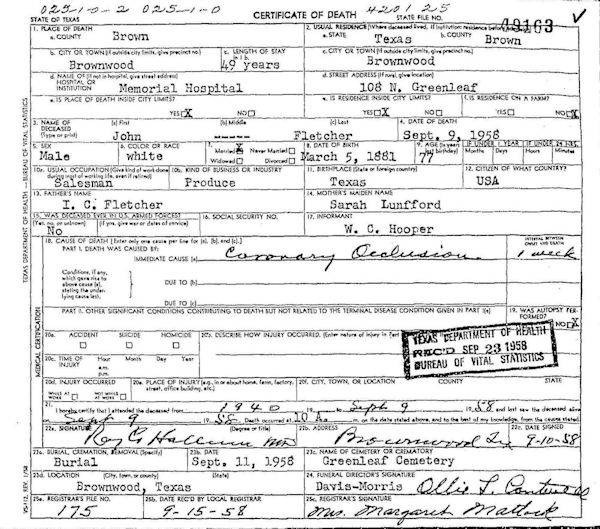 025-10-2 025-1-0 CERTIFICATE OF DEATH 4201 25 ✓
STATE OF TEXAS STATE FILE NO. 49163
1. PLACE OF DEATH 2. USUAL RESIDENCE (Where deceased lived. If institution: residence before admission)
a. COUNTY Brown a. STATE Texas b. COUNTY Brown
b. CITY OR TOWN (If outside city limits, give precinct no.) c. LENGTH OF STAY c. CITY OR TOWN (If outside city limits, give precinct no.)
Brownwood 49 years Brownwood
d. NAME OF (If not in hospital, give street address) d. STREET ADDRESS (If rural, give location)
HOSPITAL OR INSTITUTION Memorial Hospital 108 N. Greenleaf
e. IS PLACE OF DEATH INSIDE CITY LIMITS? e. IS RESIDENCE INSIDE CITY LIMITS? f. IS RESIDENCE ON A FARM?
YES X NO YES X NO YES NO X
3. NAME OF DECEASED (Type or print) (a) First (b) Middle (c) Last 4. DATE OF DEATH
John ---- Fletcher Sept. 9, 1958
5. SEX 6. COLOR OR RACE 7. Married X Never Married Widowed Divorced 8. DATE OF BIRTH 9. AGE (In years last birthday) IF UNDER 1 YEAR IF UNDER 24 HRS.
Male white March 5, 1881 77 Months Days Hours Minutes
10a. USUAL OCCUPATION (Give kind of work done during most of working life, even if retired) 10b. KIND OF BUSINESS OR INDUSTRY 11. BIRTHPLACE (State or foreign country) 12. CITIZEN OF WHAT COUNTRY?
Salesman Produce Texas USA
13. FATHER'S NAME 14. MOTHER'S MAIDEN NAME
I. C. Fletcher Sarah Lunfford
15. WAS DECEASED EVER IN U.S. ARMED FORCES? 16. SOCIAL SECURITY NO. 17. INFORMANT
(Yes, no, or unknown) (If yes, give war or dates of service)
No W. C. Hooper
18. CAUSE OF DEATH [Enter only one cause per line for (a), (b), and (c).] INTERVAL BETWEEN ONSET AND DEATH
PART I. DEATH WAS CAUSED BY:
IMMEDIATE CAUSE (a) Coronary Occlusion 1 week
Conditions, if any, which gave rise to above cause (a), stating the underlying cause last. DUE TO (b)
DUE TO (c)
PART II. OTHER SIGNIFICANT CONDITIONS CONTRIBUTING TO DEATH BUT NOT RELATED TO THE TERMINAL DISEASE CONDITION GIVEN IN PART I(a) 19. WAS AUTOPSY PERFORMED?
YES NO X
20a. ACCIDENT SUICIDE HOMICIDE 20b. DESCRIBE HOW INJURY OCCURRED. (Enter nature of injury in Part
TEXAS DEPARTMENT OF HEALTH
REC'D SEP 23 1958
BUREAU OF VITAL STATISTICS
20c. TIME OF INJURY Hour Month Day Year
20d. INJURY OCCURRED 20e. PLACE OF INJURY (e.g., in or about home, farm, factory, street, office building, etc.) 20f. CITY, TOWN, OR LOCATION COUNTY STATE
WHILE AT WORK NOT WHILE AT WORK
21. I hereby certify that I attended the deceased from 1940 to Sept 9 1958 and last saw the deceased alive
on Sept 9 1958. Death occurred at 10 A. m. on the date stated above, and to the best of my knowledge, from the causes stated.
22a. SIGNATURE (Degree or title) 22b. ADDRESS 22c. DATE SIGNED
Brownwood Tx 9-10-58
23a. BURIAL, CREMATION, REMOVAL (Specify) 23b. DATE 23c. NAME OF CEMETERY OR CREMATORY
Burial Sept. 11, 1958 Greenleaf Cemetery
23d. LOCATION (City, town, or county) (State) 24. FUNERAL DIRECTOR'S SIGNATURE
Brownwood, Texas Davis-Morris Ollie L.
25a. REGISTRAR'S FILE NO. 25b. DATE REC'D BY LOCAL REGISTRAR 25c. REGISTRAR'S SIGNATURE
175 9-15-58 Mrs. Margaret
TEXAS DEPARTMENT OF HEALTH — BUREAU OF VITAL STATISTICS
MEDICAL CERTIFICATION